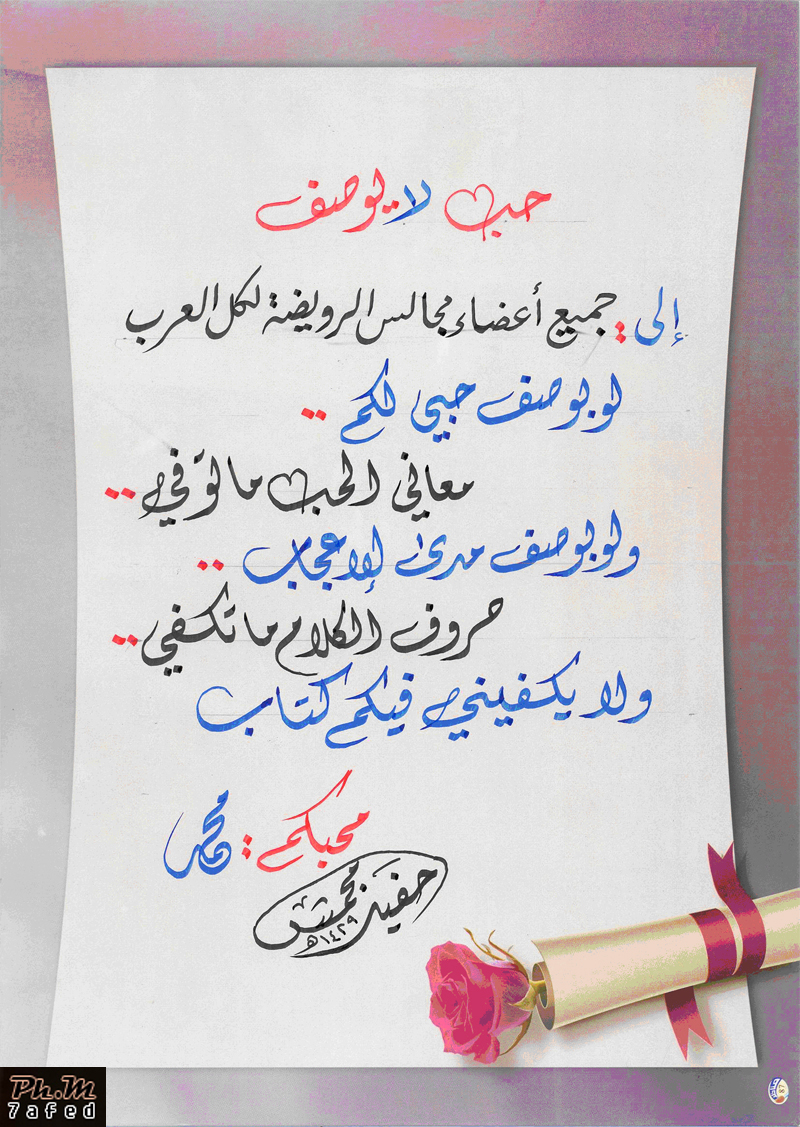 حب لا يوصف
إلى : جميع أعضاء مجالس الرويضة لكل العرب
لو بوصف حبي لكم ..
معاني الحب ما توفي ..
ولو بوصف مدى الإعجاب ..
حروف الكلام ما تكفي ..
ولا يكفيني فيكم كتاب
محبكم : محمد
١٤٢٩هـ
Ph.M
7afed